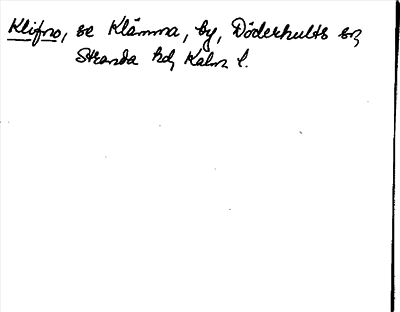 Klifno, se Klämma, by, Döderhults sn,
Stranda hd, Kalm l.